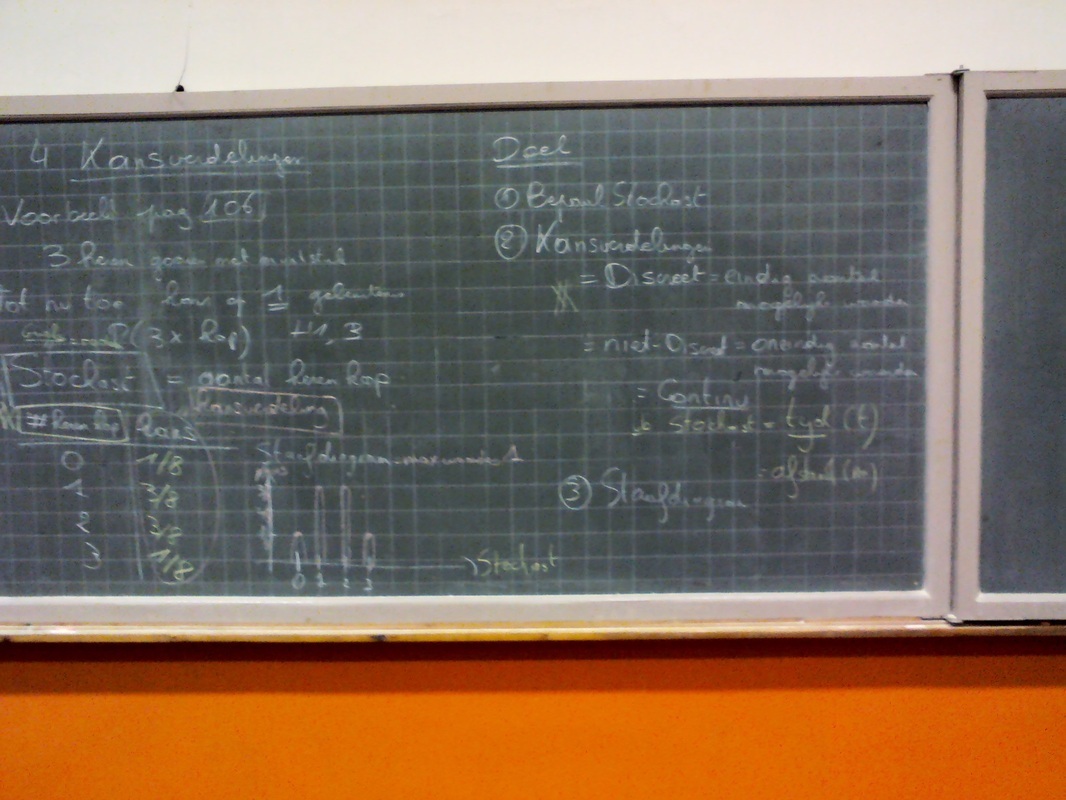 4 Kansverdelingen
Voorbeeld pag 106
3 keer gooien met muntstuk
Tot nu toe kans op 1 gebeurtenis
(3x kop)
Stochast = aantal keren kop
Kansverdeling
# keren kop kans
0 1/8
1 3/8
2 3/8
3 1/8
Staafdiagram
0 1 2 3
Stochast
Doel
① Bepaal Stochast
② Kansverdelingen
= Discreet = eindig aantal
mogelijke waarden
= niet-Discreet = oneindig aantal
mogelijke waarden
= Continu
Stochast = tijd (t)
= afstand (m)
③ Staafdiagram